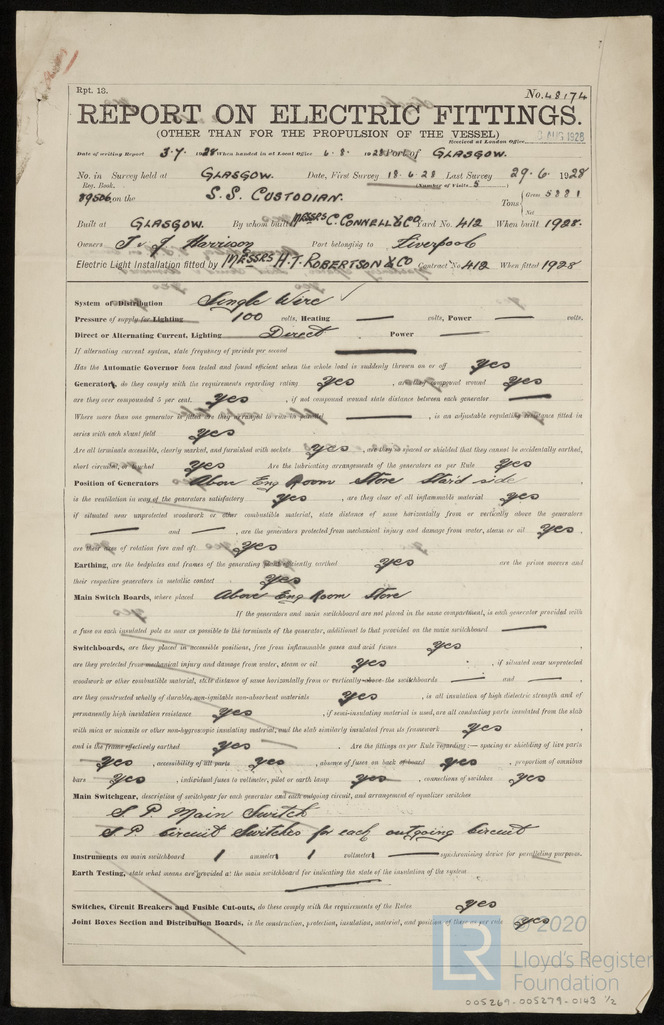 Rpt. 13.
No. 48174
REPORT ON ELECTRIC FITTINGS.
(OTHER THAN FOR THE PROPULSION OF THE VESSEL)
Received at London Office AUG 1928
Date of writing Report 3.7. 1928 When handed in at Local Office 6.8. 1928 Port of GLASGOW.
No. in Survey held at GLASGOW. Date, First Survey 18.6.28 Last Survey 29.6. 1928
Reg. Book. (Number of Visits 5)
89506 on the S.S. CUSTODIAN. Tons { Gross 5881
Net
Built at GLASGOW. By whom built MESSRS C. CONNELL & CO Yard No. 412 When built 1928.
Owners T. & J. Harrison Port belonging to Liverpool
Electric Light Installation fitted by MESSRS H.T. ROBERTSON & CO Contract No. 412 When fitted 1928
System of Distribution Single Wire
Pressure of supply for Lighting 100 volts, Heating — volts, Power — volts.
Direct or Alternating Current, Lighting Direct Power —
If alternating current system, state frequency of periods per second —
Has the Automatic Governor been tested and found efficient when the whole load is suddenly thrown on or off yes
Generators, do they comply with the requirements regarding rating yes, are they compound wound yes
are they over compounded 5 per cent. yes, if not compound wound state distance between each generator —
Where more than one generator is fitted are they arranged to run in parallel —, is an adjustable regulating resistance fitted in
series with each shunt field yes
Are all terminals accessible, clearly marked, and furnished with sockets yes, are they so spaced or shielded that they cannot be accidentally earthed,
short circuited, or touched yes Are the lubricating arrangements of the generators as per Rule yes
Position of Generators Above Eng Room Store Star'd side
is the ventilation in way of the generators satisfactory yes, are they clear of all inflammable material yes
if situated near unprotected woodwork or other combustible material, state distance of same horizontally from or vertically above the generators
— and —, are the generators protected from mechanical injury and damage from water, steam or oil yes,
are their axes of rotation fore and aft yes
Earthing, are the bedplates and frames of the generating plant efficiently earthed yes are the prime movers and
their respective generators in metallic contact yes
Main Switch Boards, where placed Above Eng Room Store
If the generators and main switchboard are not placed in the same compartment, is each generator provided with
a fuse on each insulated pole as near as possible to the terminals of the generator, additional to that provided on the main switchboard —
Switchboards, are they placed in accessible positions, free from inflammable gases and acid fumes yes,
are they protected from mechanical injury and damage from water, steam or oil yes, if situated near unprotected
woodwork or other combustible material, state distance of same horizontally from or vertically above the switchboards — and —,
are they constructed wholly of durable, non-ignitable non-absorbent materials yes, is all insulation of high dielectric strength and of
permanently high insulation resistance yes, if semi-insulating material is used, are all conducting parts insulated from the slab
with mica or micanite or other non-hygroscopic insulating material, and the slab similarly insulated from its framework yes,
and is the frame effectively earthed yes. Are the fittings as per Rule regarding:— spacing or shielding of live parts
yes, accessibility of all parts yes, absence of fuses on back of board yes, proportion of omnibus
bars yes, individual fuses to voltmeter, pilot or earth lamp yes, connections of switches yes
Main Switchgear, description of switchgear for each generator and each outgoing circuit, and arrangement of equalizer switches
S. P. Main Switch
S. P. Circuit Switches for each outgoing Circuit
Instruments on main switchboard 1 ammeter 1 voltmeter — synchronising device for paralleling purposes.
Earth Testing, state what means are provided at the main switchboard for indicating the state of the insulation of the system
—
Switches, Circuit Breakers and Fusible Cut-outs, do these comply with the requirements of the Rules yes
Joint Boxes Section and Distribution Boards, is the construction, protection, insulation, material, and position of these as per rule yes
LR
© 2020
Lloyd's Register
Foundation
005269-005279-0143 1/2